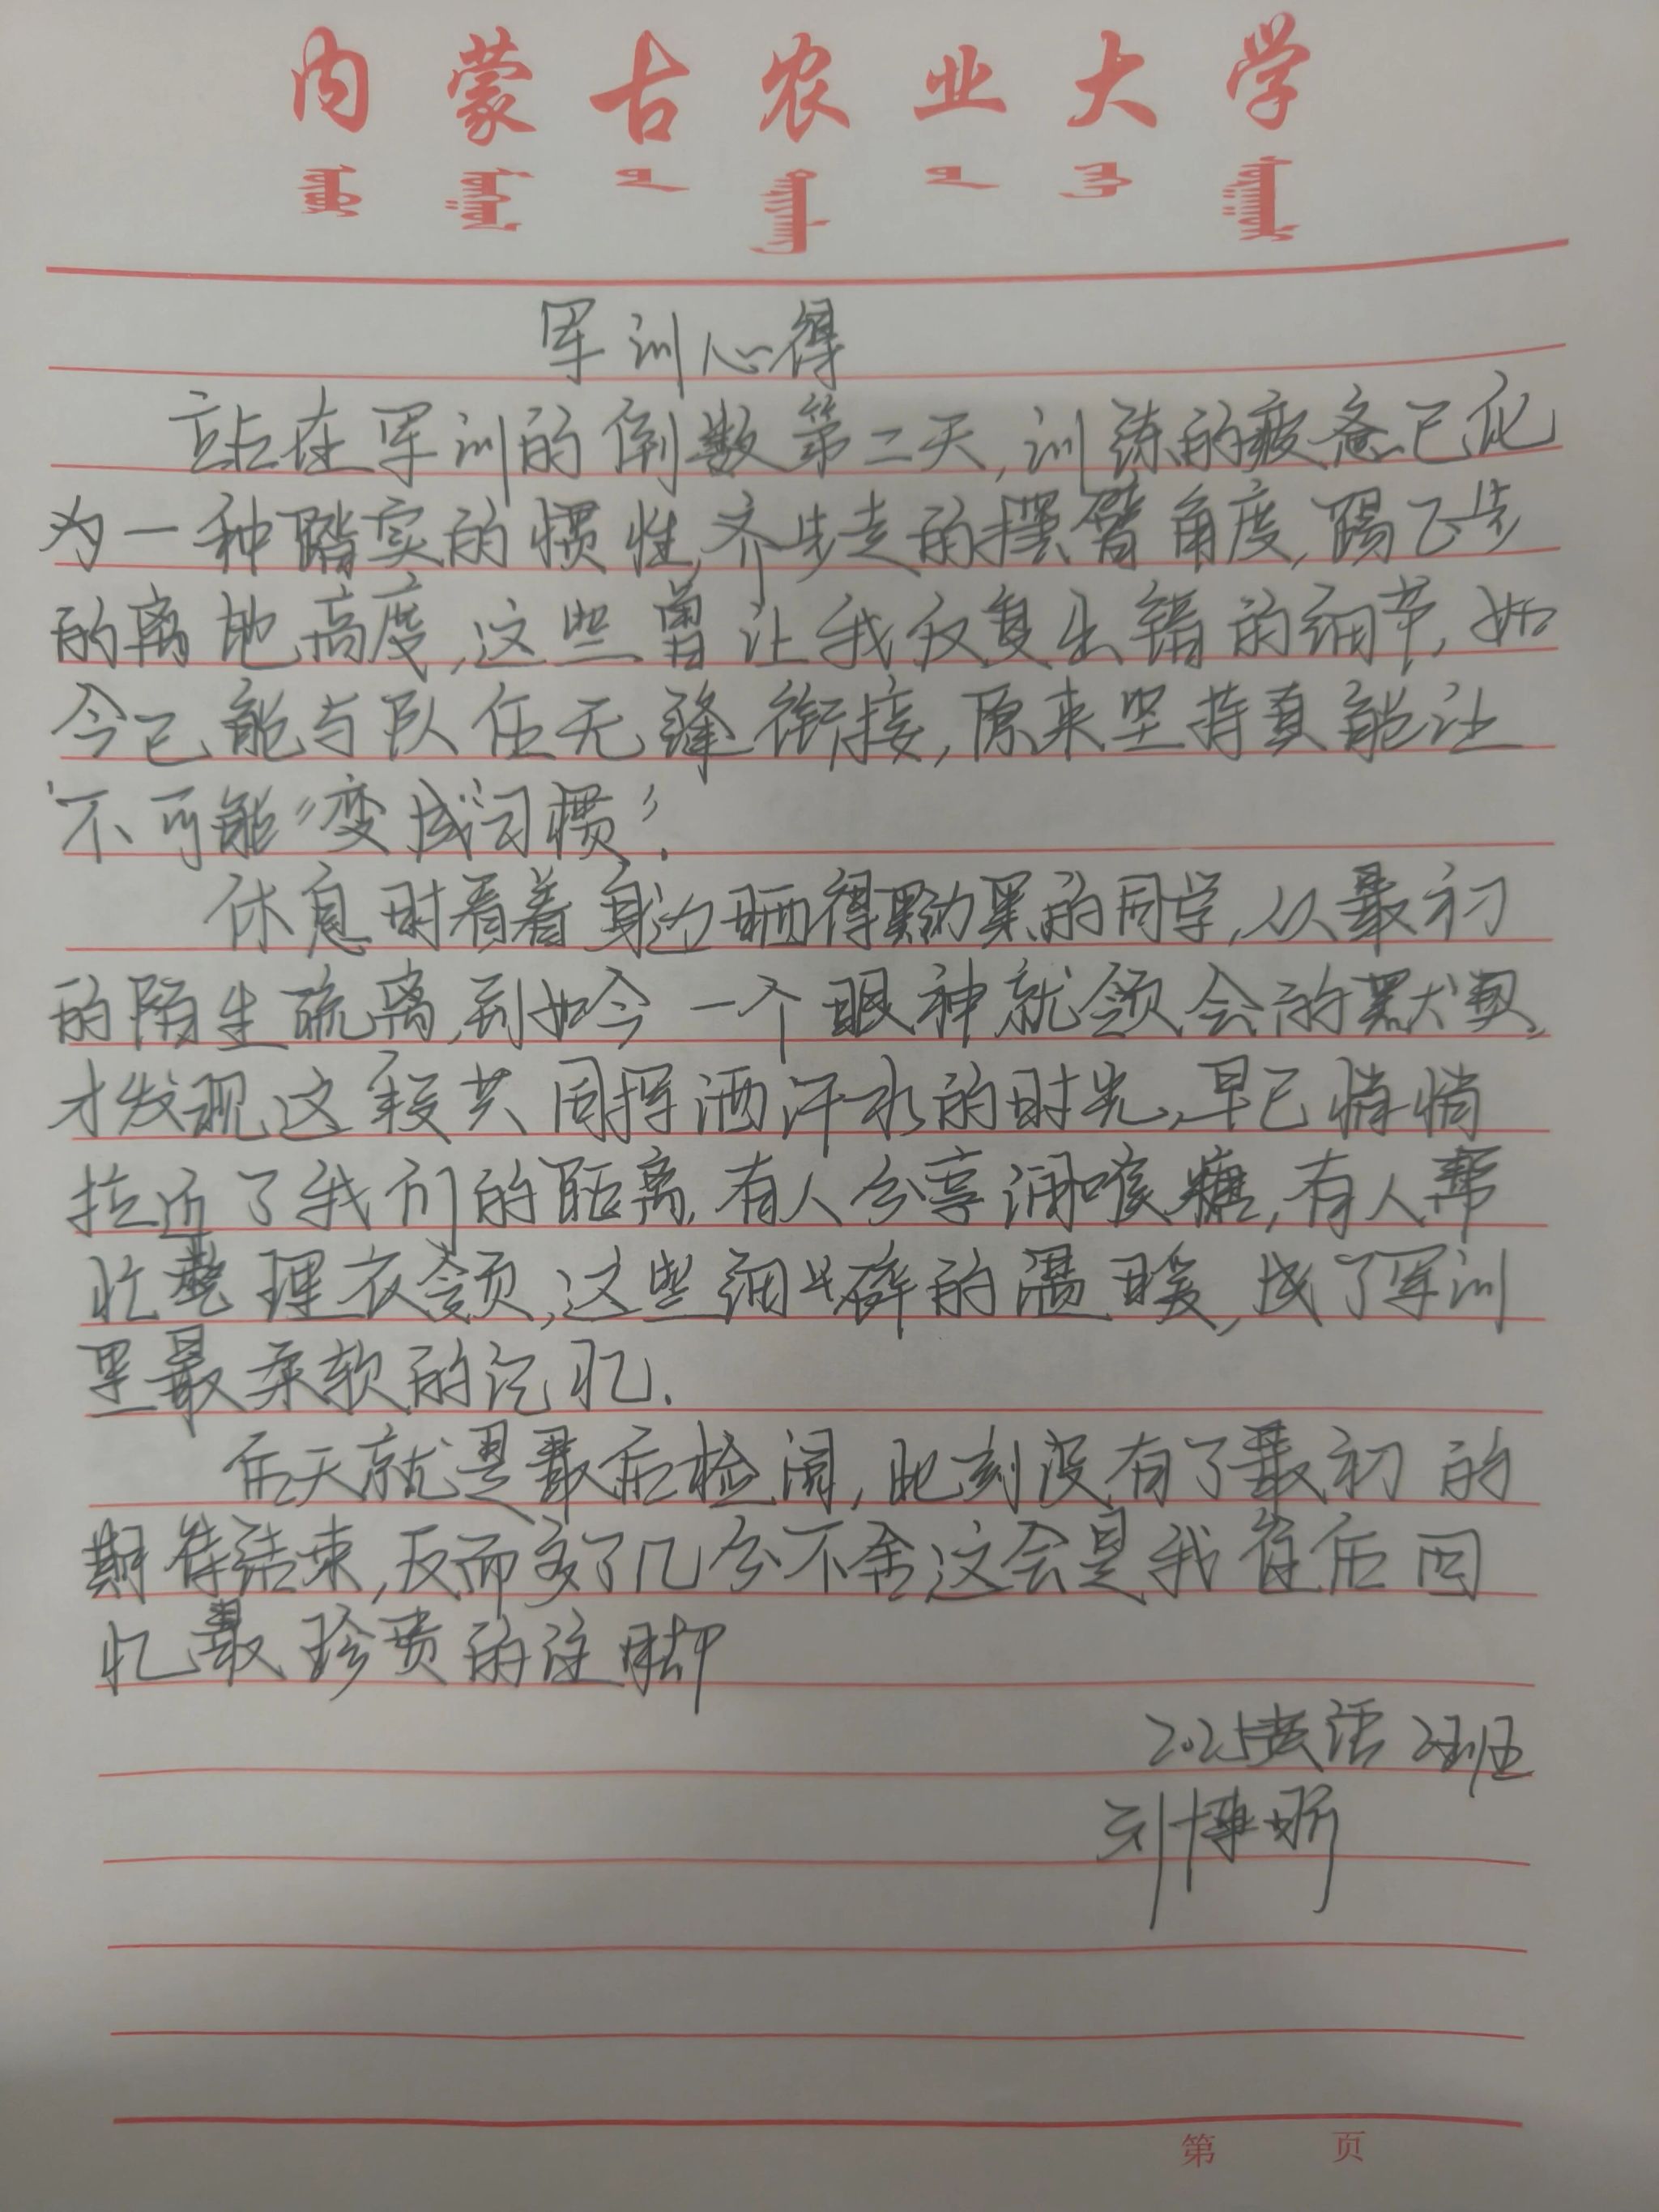 内蒙古农业大学
军训心得
站在军训的倒数第二天,训练的疲惫已化
为一种踏实的惯性,齐步走的摆臂角度,踢正步
的离地高度,这些曾让我反复出错的细节,如
今已能与队伍无缝衔接,原来坚持真能让
"不可能"变成习惯".
休息时看着身边晒得黝黑的同学,从最初
的陌生疏离,到如今一个眼神就领会的默契,
才发现这段共同挥洒汗水的时光,早已悄悄
拉近了我们的距离,有人分享润喉糖,有人帮
忙整理衣领,这些细碎的温暖,成了军训
里最柔软的记忆.
后天就是最后检阅,此刻没有了最初的
期待结束,反而多了几分不舍这会是我往后回
忆最珍贵的注脚
2025 2班
刘博妍
第 页